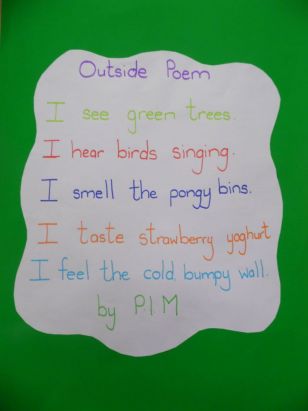 Outside Poem
I see green trees.
I hear birds singing.
I smell the pongy bins.
I taste strawberry yoghurt
I feel the cold, bumpy wall.
by P1M